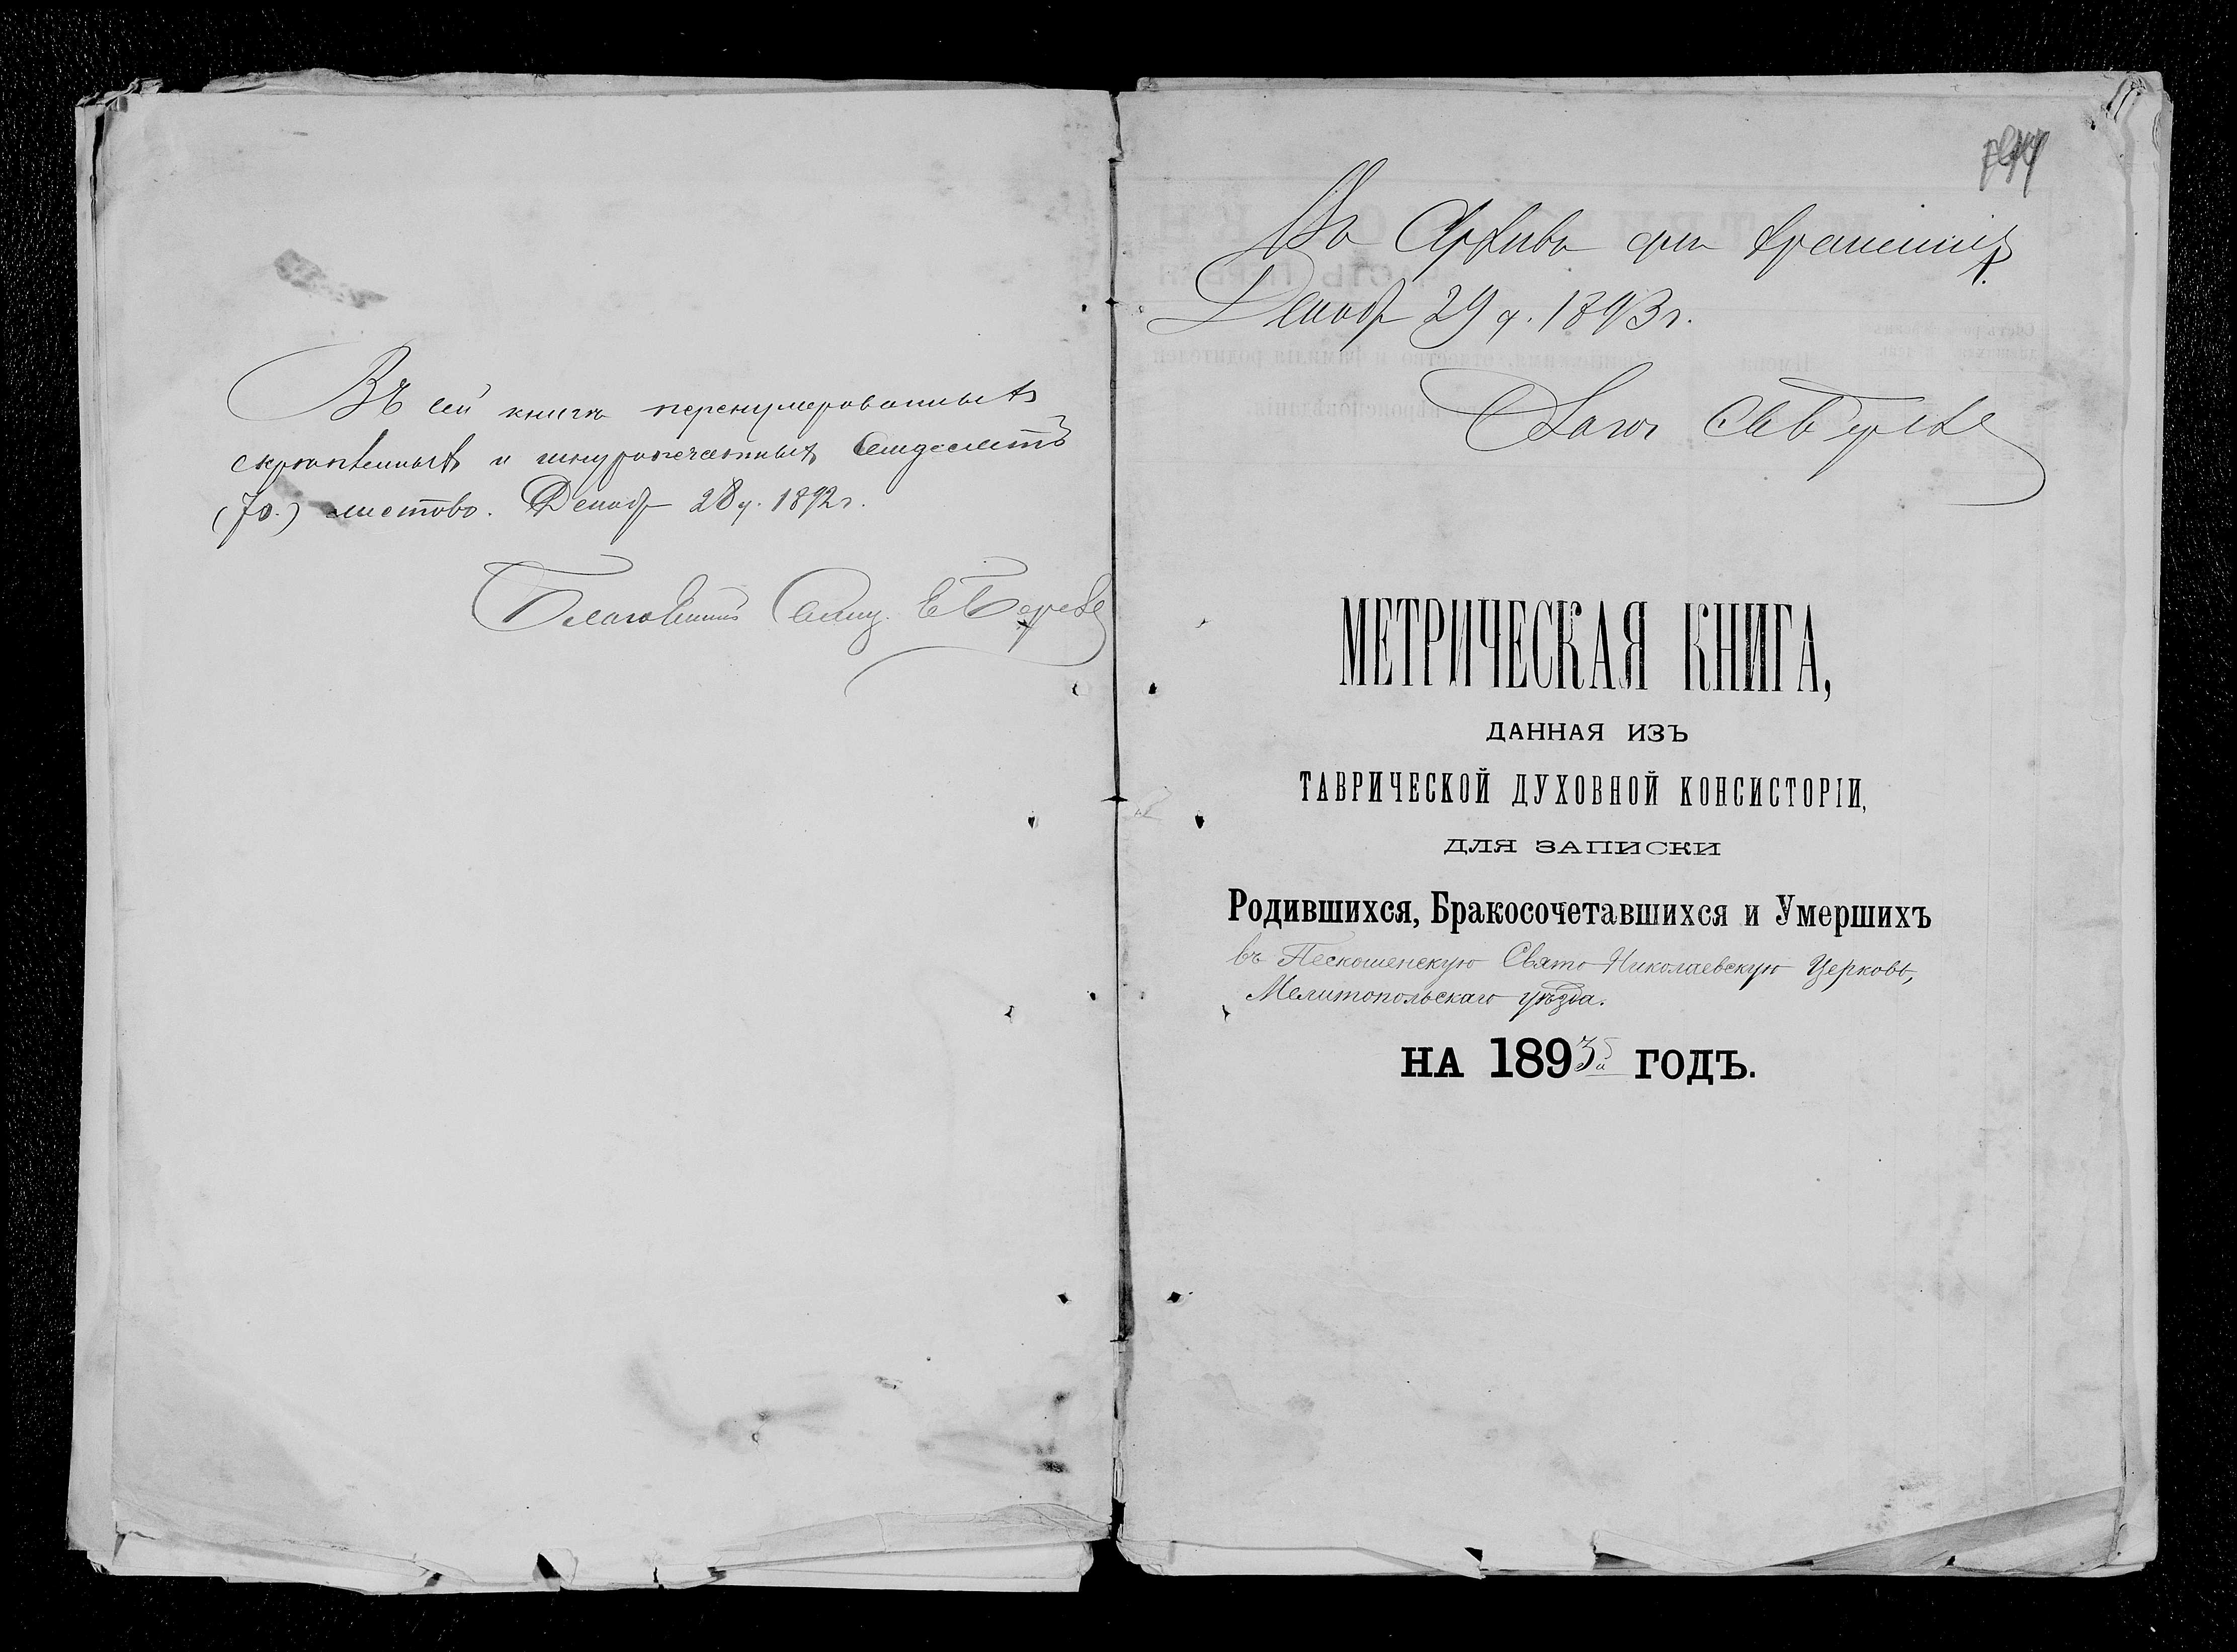 Въ сей книгѣ перенумерованныхъ
скрѣпленныхъ и шнуропечатныхъ Семдесятъ
(70.) листовъ. Декабр 28 д. 1892 г.
Благочинный Свящ.
Въ Архивъ для храненія
Декабр 29 д. 1893 г.
МЕТРИЧЕСКАЯ КНИГА,
ДАННАЯ ИЗЪ
ТАВРИЧЕСКОЙ ДУХОВНОЙ КОНСИСТОРІИ,
ДЛЯ ЗАПИСКИ
Родившихся, Бракосочетавшихся и Умершихъ
въ Пескошенскую Свято-Николаевскую Церковь,
Мелитопольскаго уѣзда.
НА 1893й ГОДЪ.